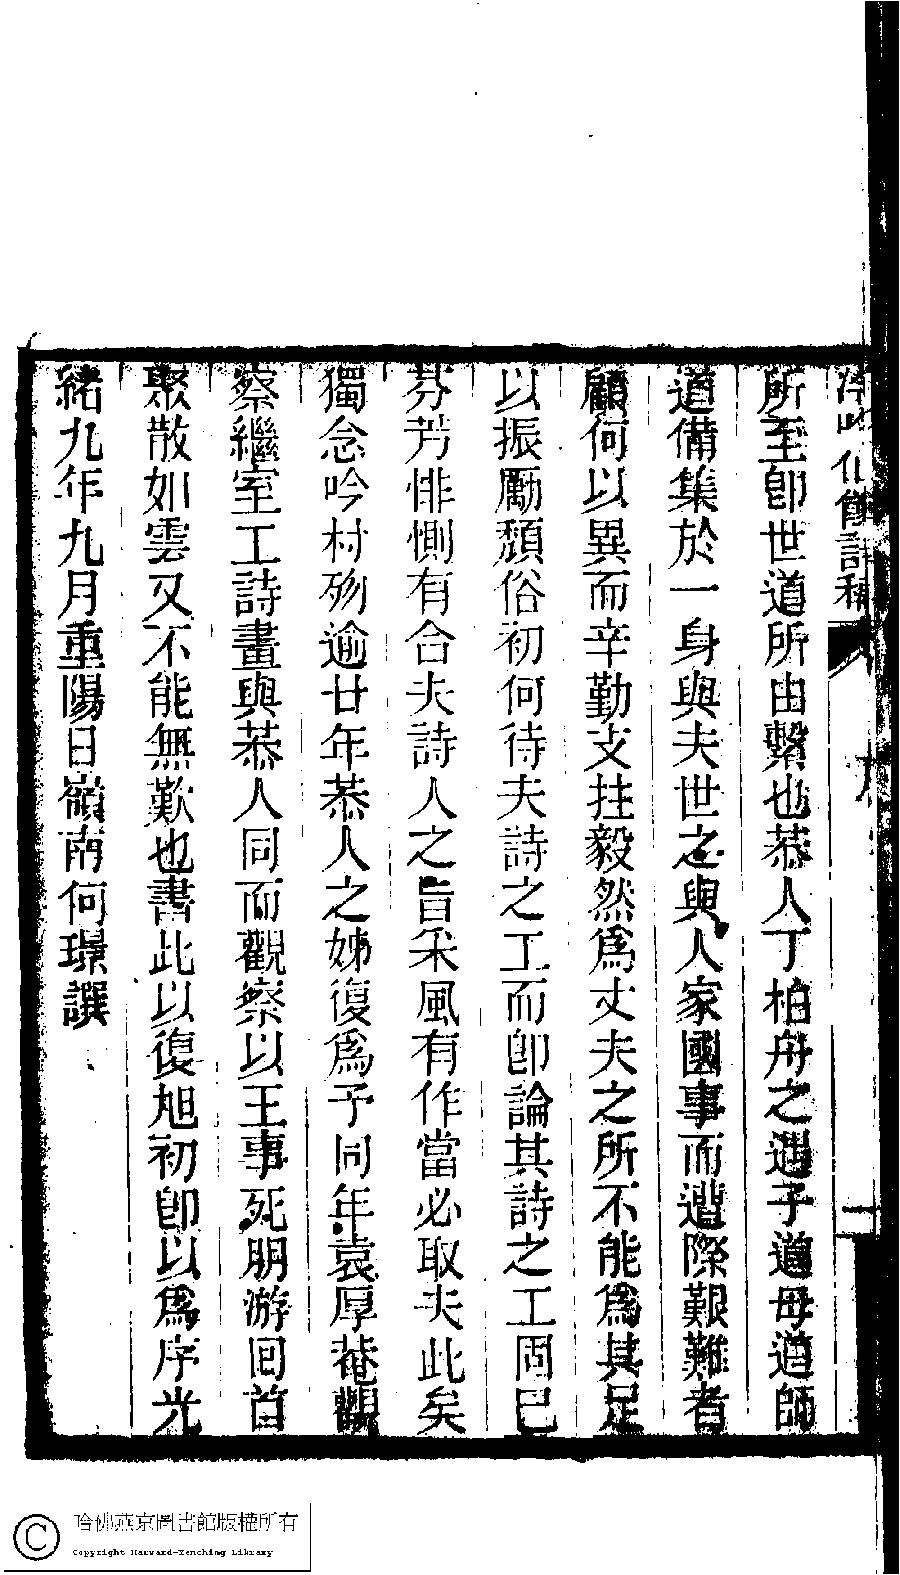 仙館詩稿
一
所至卽世道所由繫也恭人丁柏舟之遇子道母道師
道備集於一身與夫世之與人家國事而遭際艱難者
顧何以異而辛勤支拄毅然爲丈夫之所不能爲其足
以振勵頹俗初何待夫詩之工而卽論其詩之工固已
芬芳悱惻有合夫詩人之旨采風有作當必取夫此矣
獨念吟村歿逾廿年恭人之姊復爲予同年袁厚菴觀
察繼室工詩畫與恭人同而觀察以王事死朋游回首
聚散如雲又不能無歎也書此以復旭初卽以爲序光
緒九年九月重陽日嶺南何璟譔
哈佛燕京圖書館版權所有
Copyright Harvard-Yenching Library